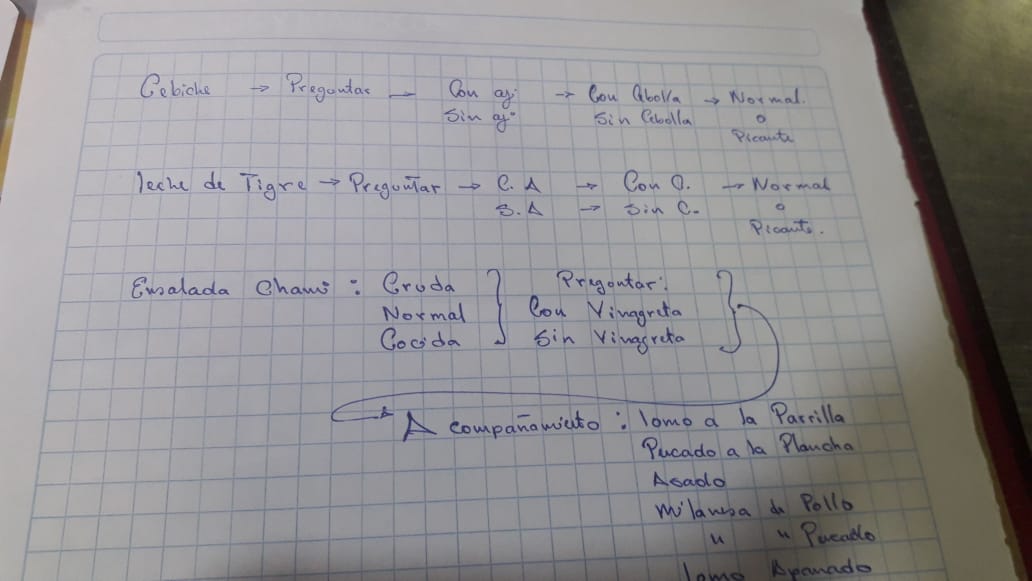 Cebiche → Preguntar — Con aji → Con Cebolla → Normal.
Sin aji Sin Cebolla o
Picante
leche de Tigre → Preguntar → C.A → Con C. → Normal
S.A → Sin C. o
Picante.
Ensalada Chami : Cruda } Preguntar: }
Normal Con Vinagreta
Cocida Sin Vinagreta
Acompañamiento : lomo a la Parrilla
Pescado a la Plancha
Asado
Milanesa de Pollo
" " Pescado
lomo Apanado